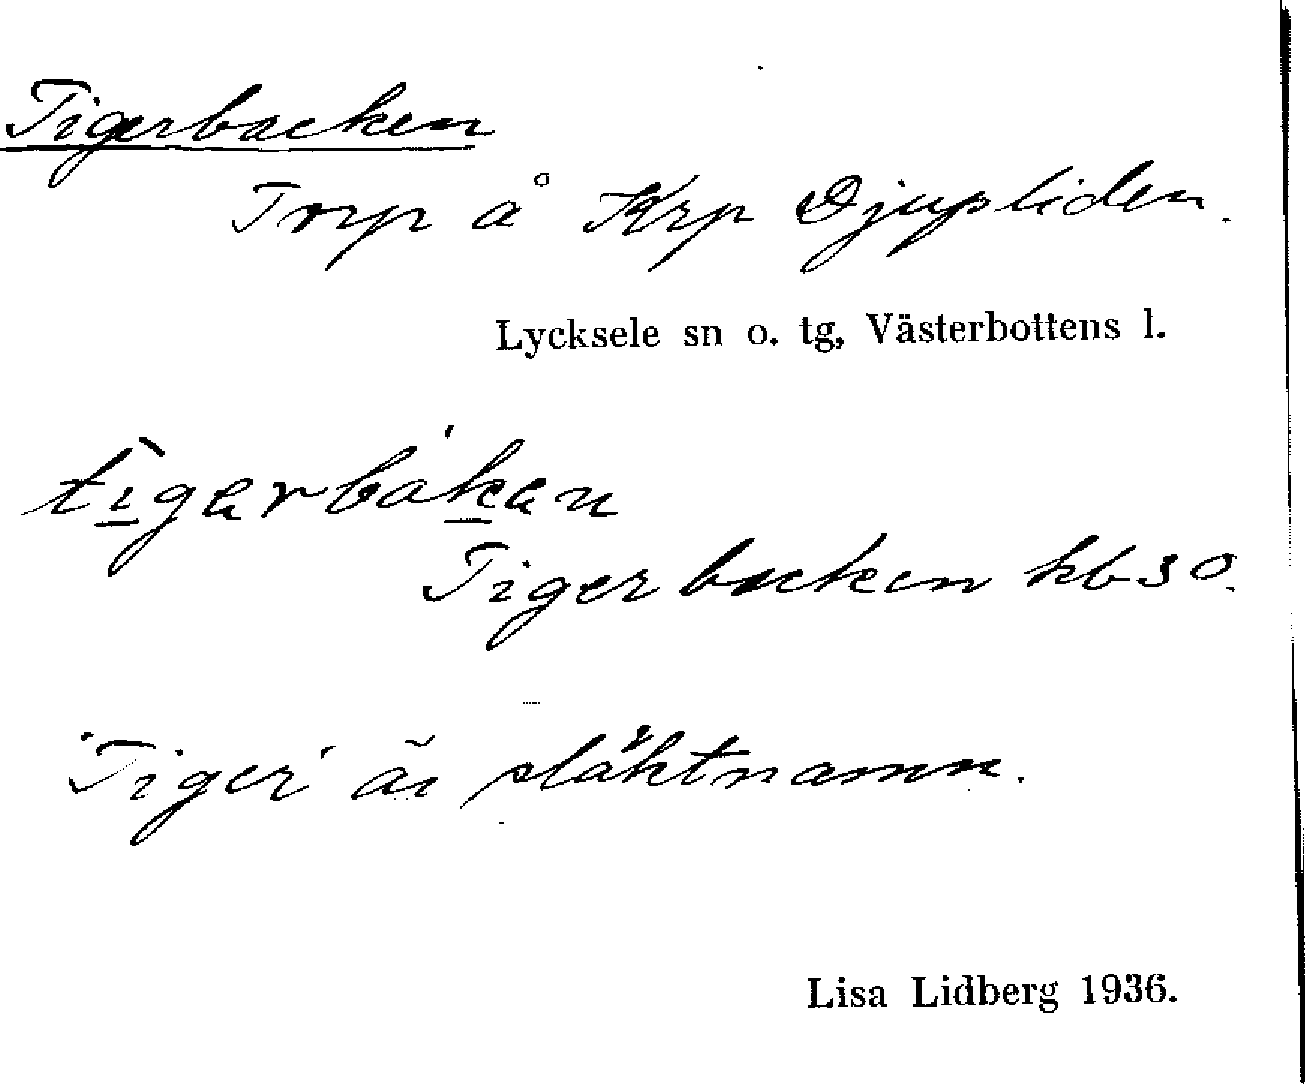 Tigerbacken
Torp å Krp Djupliden.
Lycksele sn o. tg, Västerbottens l.
tìgɐrbákɐn
Tigerbacken kb 30.
'Tiger' är släktnamn.
Lisa Lidberg 1936.